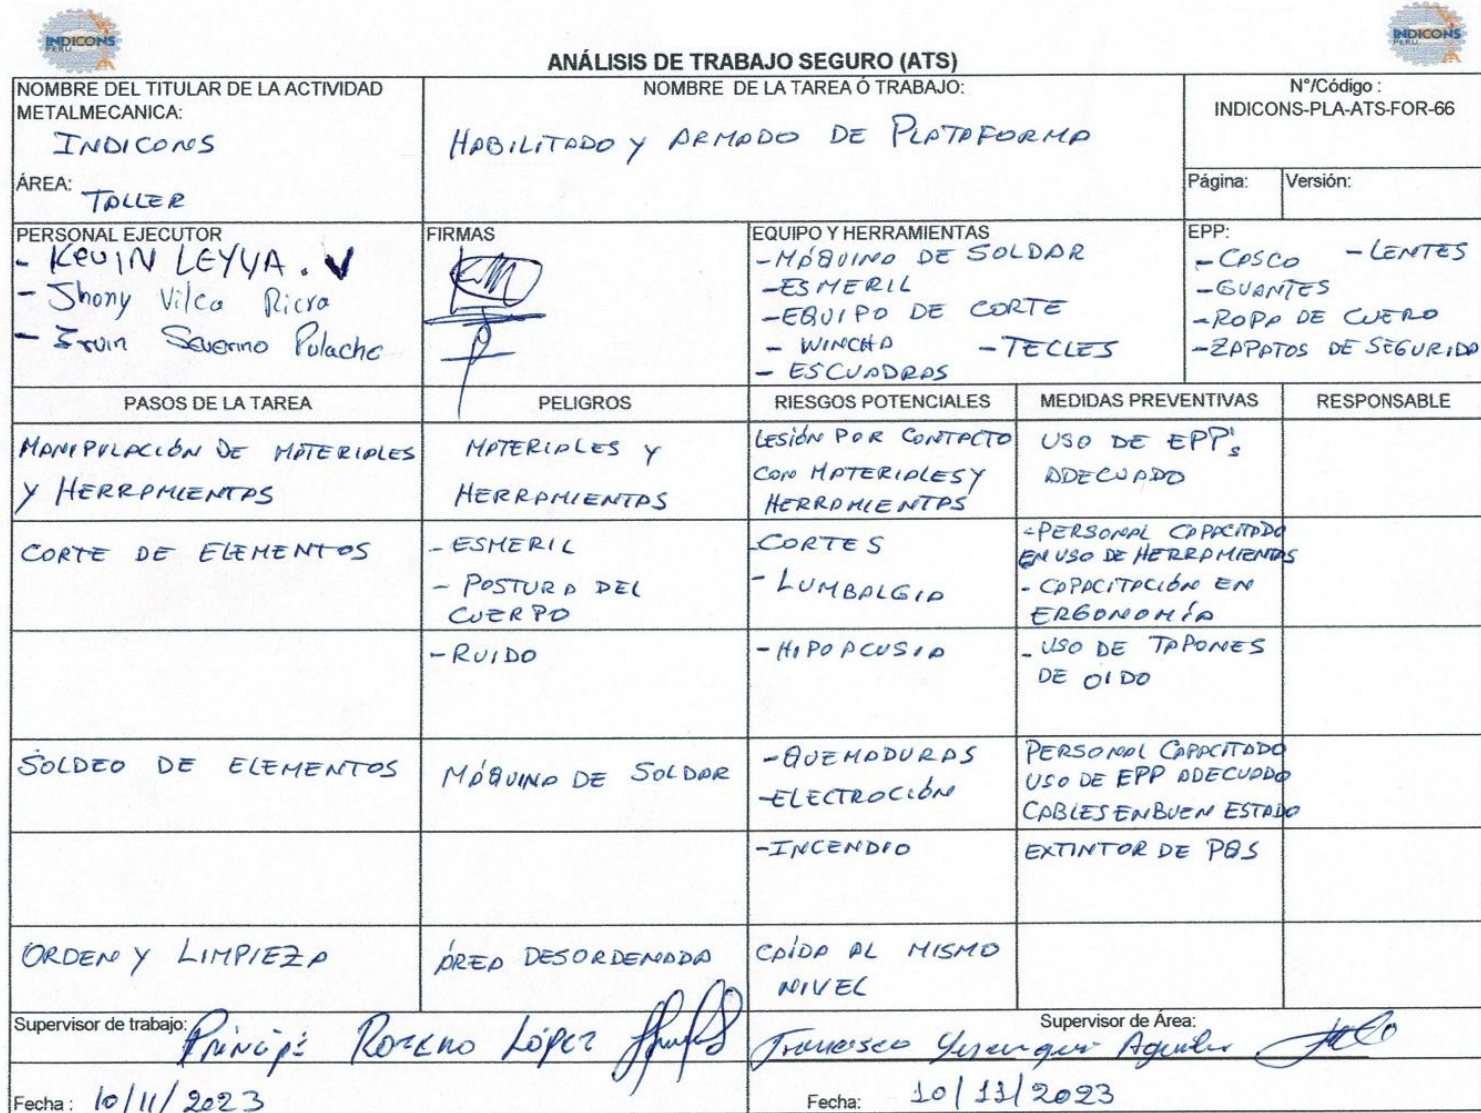 INDICONS
PERU
INDICONS
PERU
ANÁLISIS DE TRABAJO SEGURO (ATS)
NOMBRE DEL TITULAR DE LA ACTIVIDAD
METALMECANICA:
INDICONS
ÁREA:
TALLER
NOMBRE DE LA TAREA Ó TRABAJO:
HABILITADO Y ARMADO DE PLATAFORMA
N°/Código :
INDICONS-PLA-ATS-FOR-66
Página: Versión:
PERSONAL EJECUTOR
- KEVIN LEYVA.
- Jhony Vilca Ricra
- Ervin Severino Pulache
FIRMAS
EQUIPO Y HERRAMIENTAS
- MÁQUINA DE SOLDAR
- ESMERIL
- EQUIPO DE CORTE
- WINCHA - TECLES
- ESCUADRAS
EPP:
- CASCO - LENTES
- GUANTES
- ROPA DE CUERO
- ZAPATOS DE SEGURIDA
PASOS DE LA TAREA PELIGROS RIESGOS POTENCIALES MEDIDAS PREVENTIVAS RESPONSABLE
MANIPULACIÓN DE MATERIALES
Y HERRAMIENTAS
MATERIALES Y
HERRAMIENTAS
LESIÓN POR CONTACTO
CON MATERIALES Y
HERRAMIENTAS
USO DE EPP's
ADECUADO
CORTE DE ELEMENTOS
- ESMERIL
- POSTURA DEL
CUERPO
- CORTES
- LUMBALGIA
- PERSONAL CAPACITADO
EN USO DE HERRAMIENTAS
- CAPACITACIÓN EN
ERGONOMÍA
- RUIDO
- HIPOACUSIA
- USO DE TAPONES
DE OIDO
SOLDEO DE ELEMENTOS
MÁQUINA DE SOLDAR
- QUEMADURAS
- ELECTROCIÓN
PERSONAL CAPACITADO
USO DE EPP ADECUADO
CABLES EN BUEN ESTADO
- INCENDIO
EXTINTOR DE PQS
ORDEN Y LIMPIEZA
ÁREA DESORDENADA
CAÍDA AL MISMO
NIVEL
Supervisor de trabajo: López
Supervisor de Área:
Francisco Aguilar
Fecha: 10/11/2023
Fecha: 10/11/2023